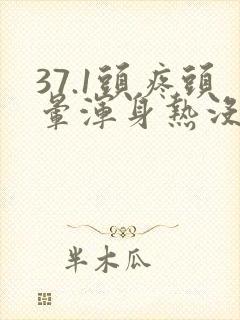 37.1頭疼頭
暈渾身熱沒
半木瓜